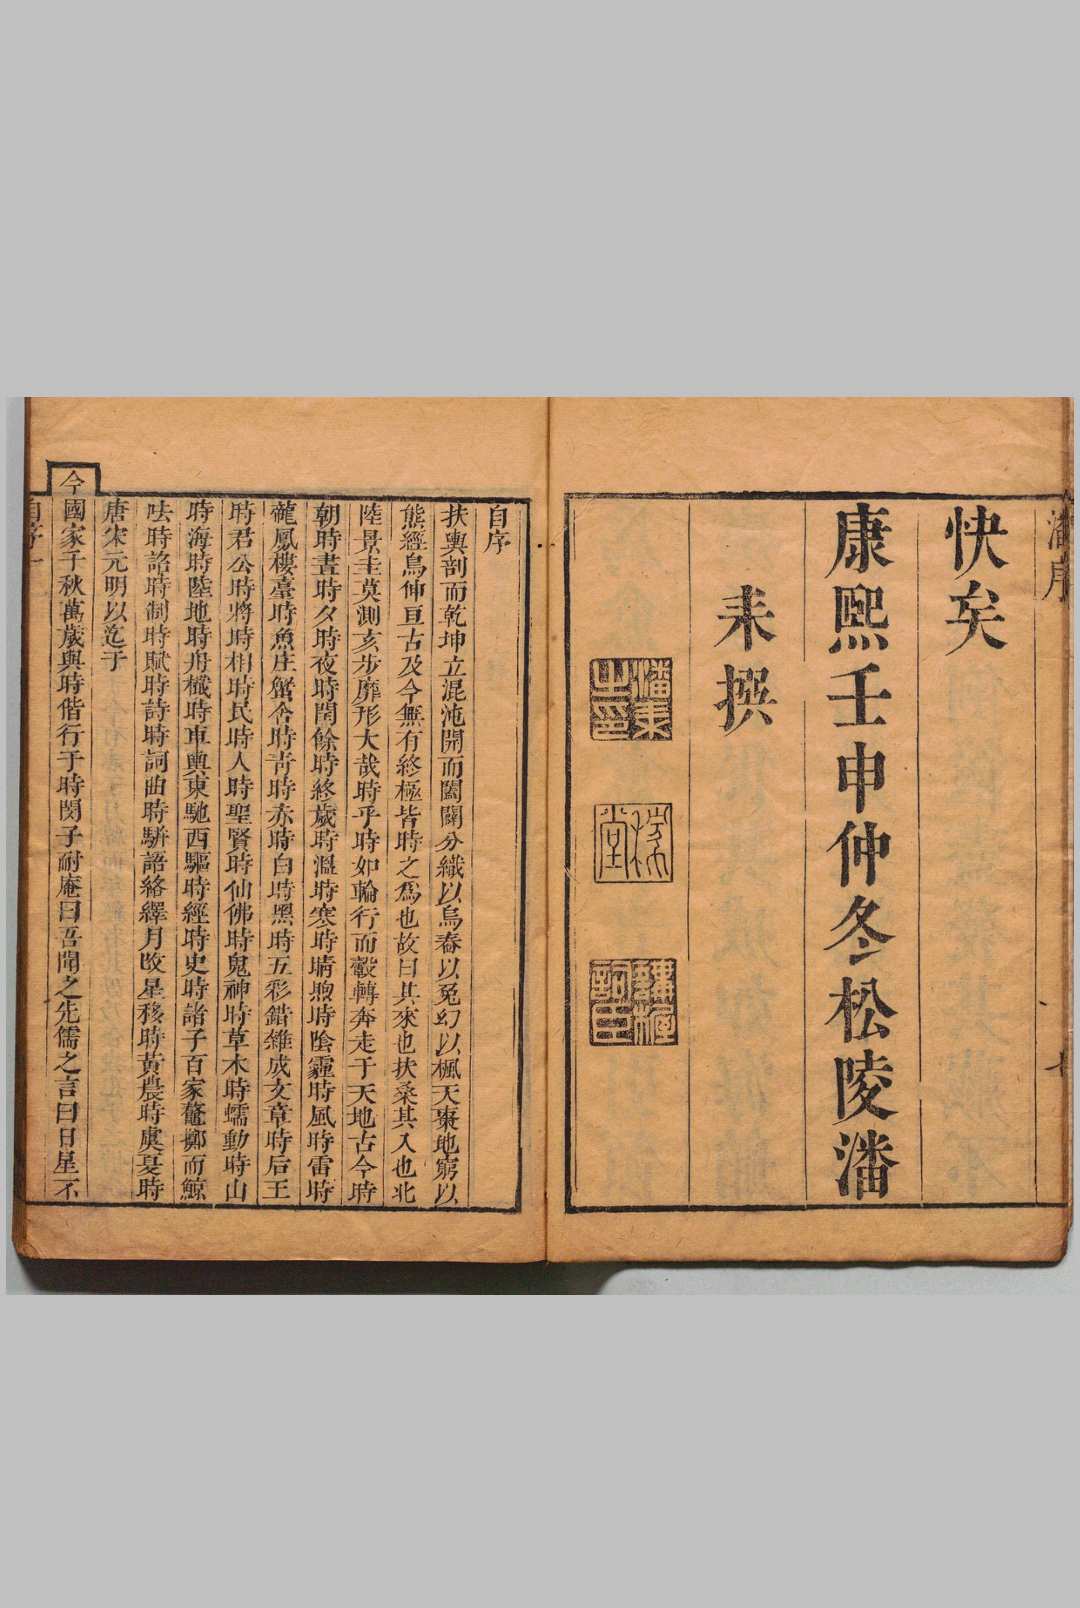 潘序
快矣
康熙壬申仲冬松陵潘
耒撰
潘耒之印
遂初堂
講極
自序
扶輿剖而乾坤立混沌開而闔闢分織以烏春以兔幻以楓天棗地窮以
熊經鳥伸亘古及今無有終極皆時之爲也故曰其來也扶桑其入也北
陸景圭莫測亥步靡形大哉時乎時如輪行而轂轉奔走于天地古今時
朝時晝時夕時夜時閏餘時終歲時溫時寒時晴時煦時陰霾時風時雷時
龍鳳樓臺時魚庄蟹舍時靑時赤時白時黑時五彩錯雜成文章時后王
時君公時將時相時民時人時聖賢時仙佛時鬼神時草木時蠕動時山
時海時陸地時舟檝時車輿東馳西驅時經時史時諸子百家鼇擲而鯨
呿時詔時制時賦時詩時詞曲時駢語絡繹月改星移時黃農時虞夏時
唐宋元明以迄于
今國家千秋萬歲與時偕行于時閔子耐庵曰吾聞之先儒之言曰日星不
自序 一